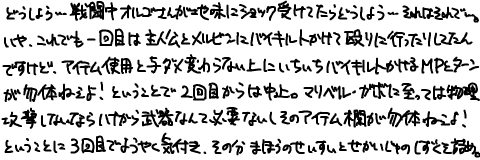 どうしよう…戦闘中オルゴさんが地味にショック受けてたらどうしよう…それはそれで…。
いや、これでも一回目は主人公とメルビンにバイキルトかけて殴りに行ったりしてたん
ですけど、アイテム使用と与ダメ変わらない上にいちいちバイキルトかけるMPとターン
が勿体ねぇよ!ということで2回目からは中止。マリベル・ガボに至っては物理
攻撃しないならハナから武器なんて必要ないしそのアイテム欄が勿体ねぇよ!
ということに3回目でようやく気付き、その分まほうのせいすいとせかいじゅのしずくを詰め。